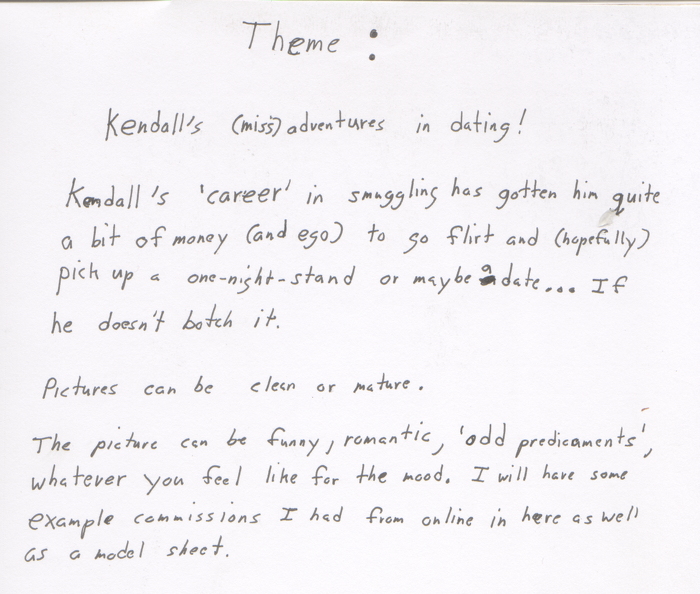 Theme :
Kendall's (miss) adventures in dating!
Kendall's 'career' in smuggling has gotten him quite
a bit of money (and ego) to go flirt and (hopefully)
pick up a one-night-stand or maybe a date... If
he doesn't botch it.
Pictures can be clean or mature.
The picture can be funny, romantic, 'odd predicaments',
whatever you feel like for the mood. I will have some
example commissions I had from online in here as well
as a model sheet.